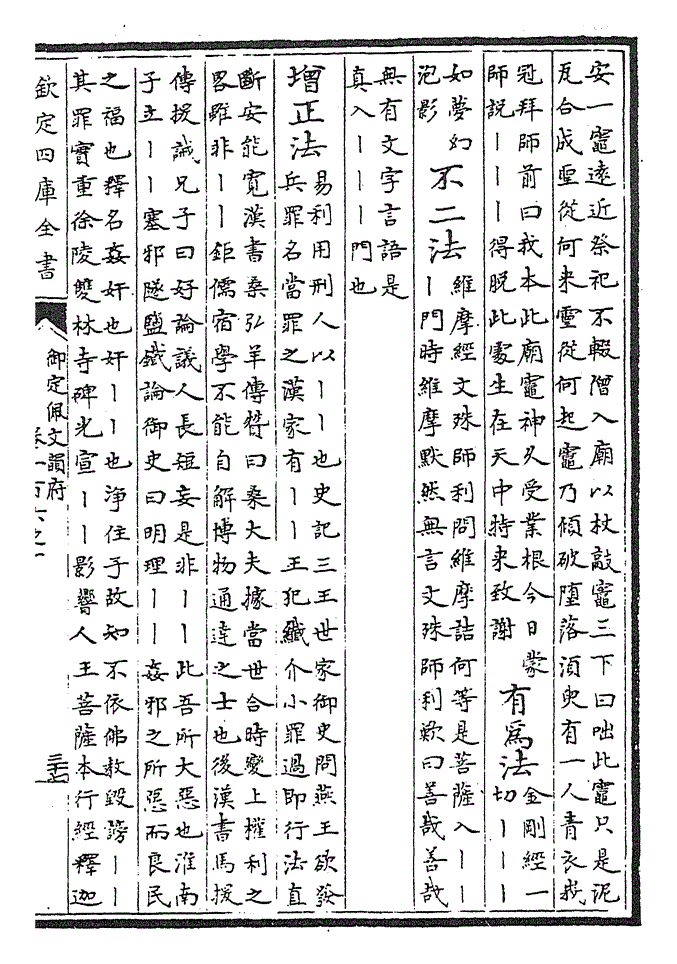 安一竈遠近祭祀不輟僧入廟以杖敲竈三下曰咄此竈只是泥
瓦合成聖從何來靈從何起竈乃傾破墮落須臾有一人青衣峩
冠拜師前曰我本此廟竈神久受業根今日蒙
師説丨丨丨得脫此處生在天中特來致謝
有爲法
金剛經一
切丨丨丨
如夢幻
泡影
不二法
維摩經文殊師利問維摩詰何等是菩薩入丨丨
丨門時維摩默然無言文殊師利歎曰善哉善哉
無有文字言語是
真入丨丨丨門也
增正法
易利用刑人以丨丨也史記三王世家御史問燕王欲發
兵罪名當罪之漢家有丨丨王犯纖介小罪過即行法直
斷安能寛漢書桑弘羊傳贊曰桑大夫據當世合時變上權利之
畧雖非丨丨鉅儒宿學不能自解博物通達之士也後漢書馬援
傳援誡兄子曰好論議人長短妄是非丨丨此吾所大惡也淮南
子立丨丨塞邪隧鹽鐵論御史曰明理丨丨姦邪之所惡而良民
之福也釋名姦奸也奸丨丨也淨住子故知不依佛敎毀謗丨丨
其罪實重徐陵雙林寺碑光宣丨丨影響人王菩薩本行經釋迦
欽定四庫全書
御定佩文韻府